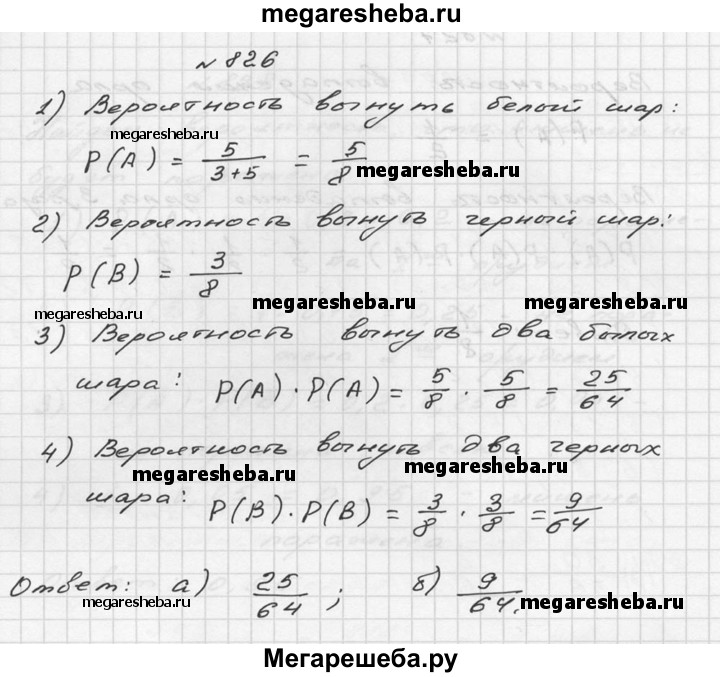 megaresheba.ru
№ 826
1) Вероятность вынуть белый шар:
megaresheba.ru
P(A) = 5/(3+5) = 5/8
megaresheba.ru
2) Вероятность вынуть черный шар:
P(B) = 3/8
megaresheba.ru megaresheba.ru
3) Вероятность вынуть два белых
шара: P(A) · P(A) = 5/8 · 5/8 = 25/64
4) Вероятность вынуть два черных
megaresheba.ru megaresheba.ru
шара: P(B) · P(B) = 3/8 · 3/8 = 9/64
Ответ: а) 25/64 ; б) 9/64.
megaresheba.ru megaresheba.ru
Мегарешеба.ру